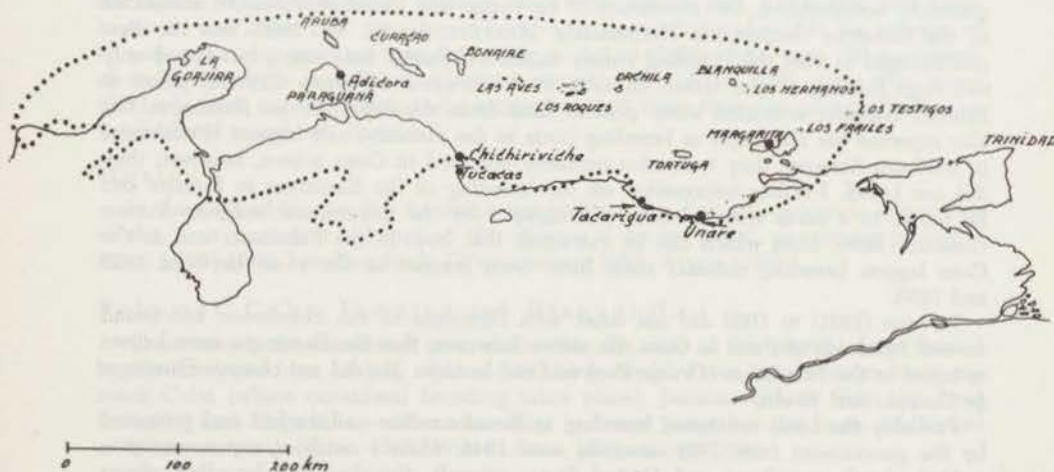 ARUBA
CURAÇAO
BONAIRE
LA
GOAJIRA
Adicora
PARAGUANA
LAS AVES
LOS ROQUES
ORCHILA
BLANQUILLA
LOS HERMANOS
LOS TESTIGOS
MARGARITA
LOS FRAILES
TORTUGA
TRINIDAD
Chichiriviche
Tucacas
Tacarigua
Unare
0 100 200 km